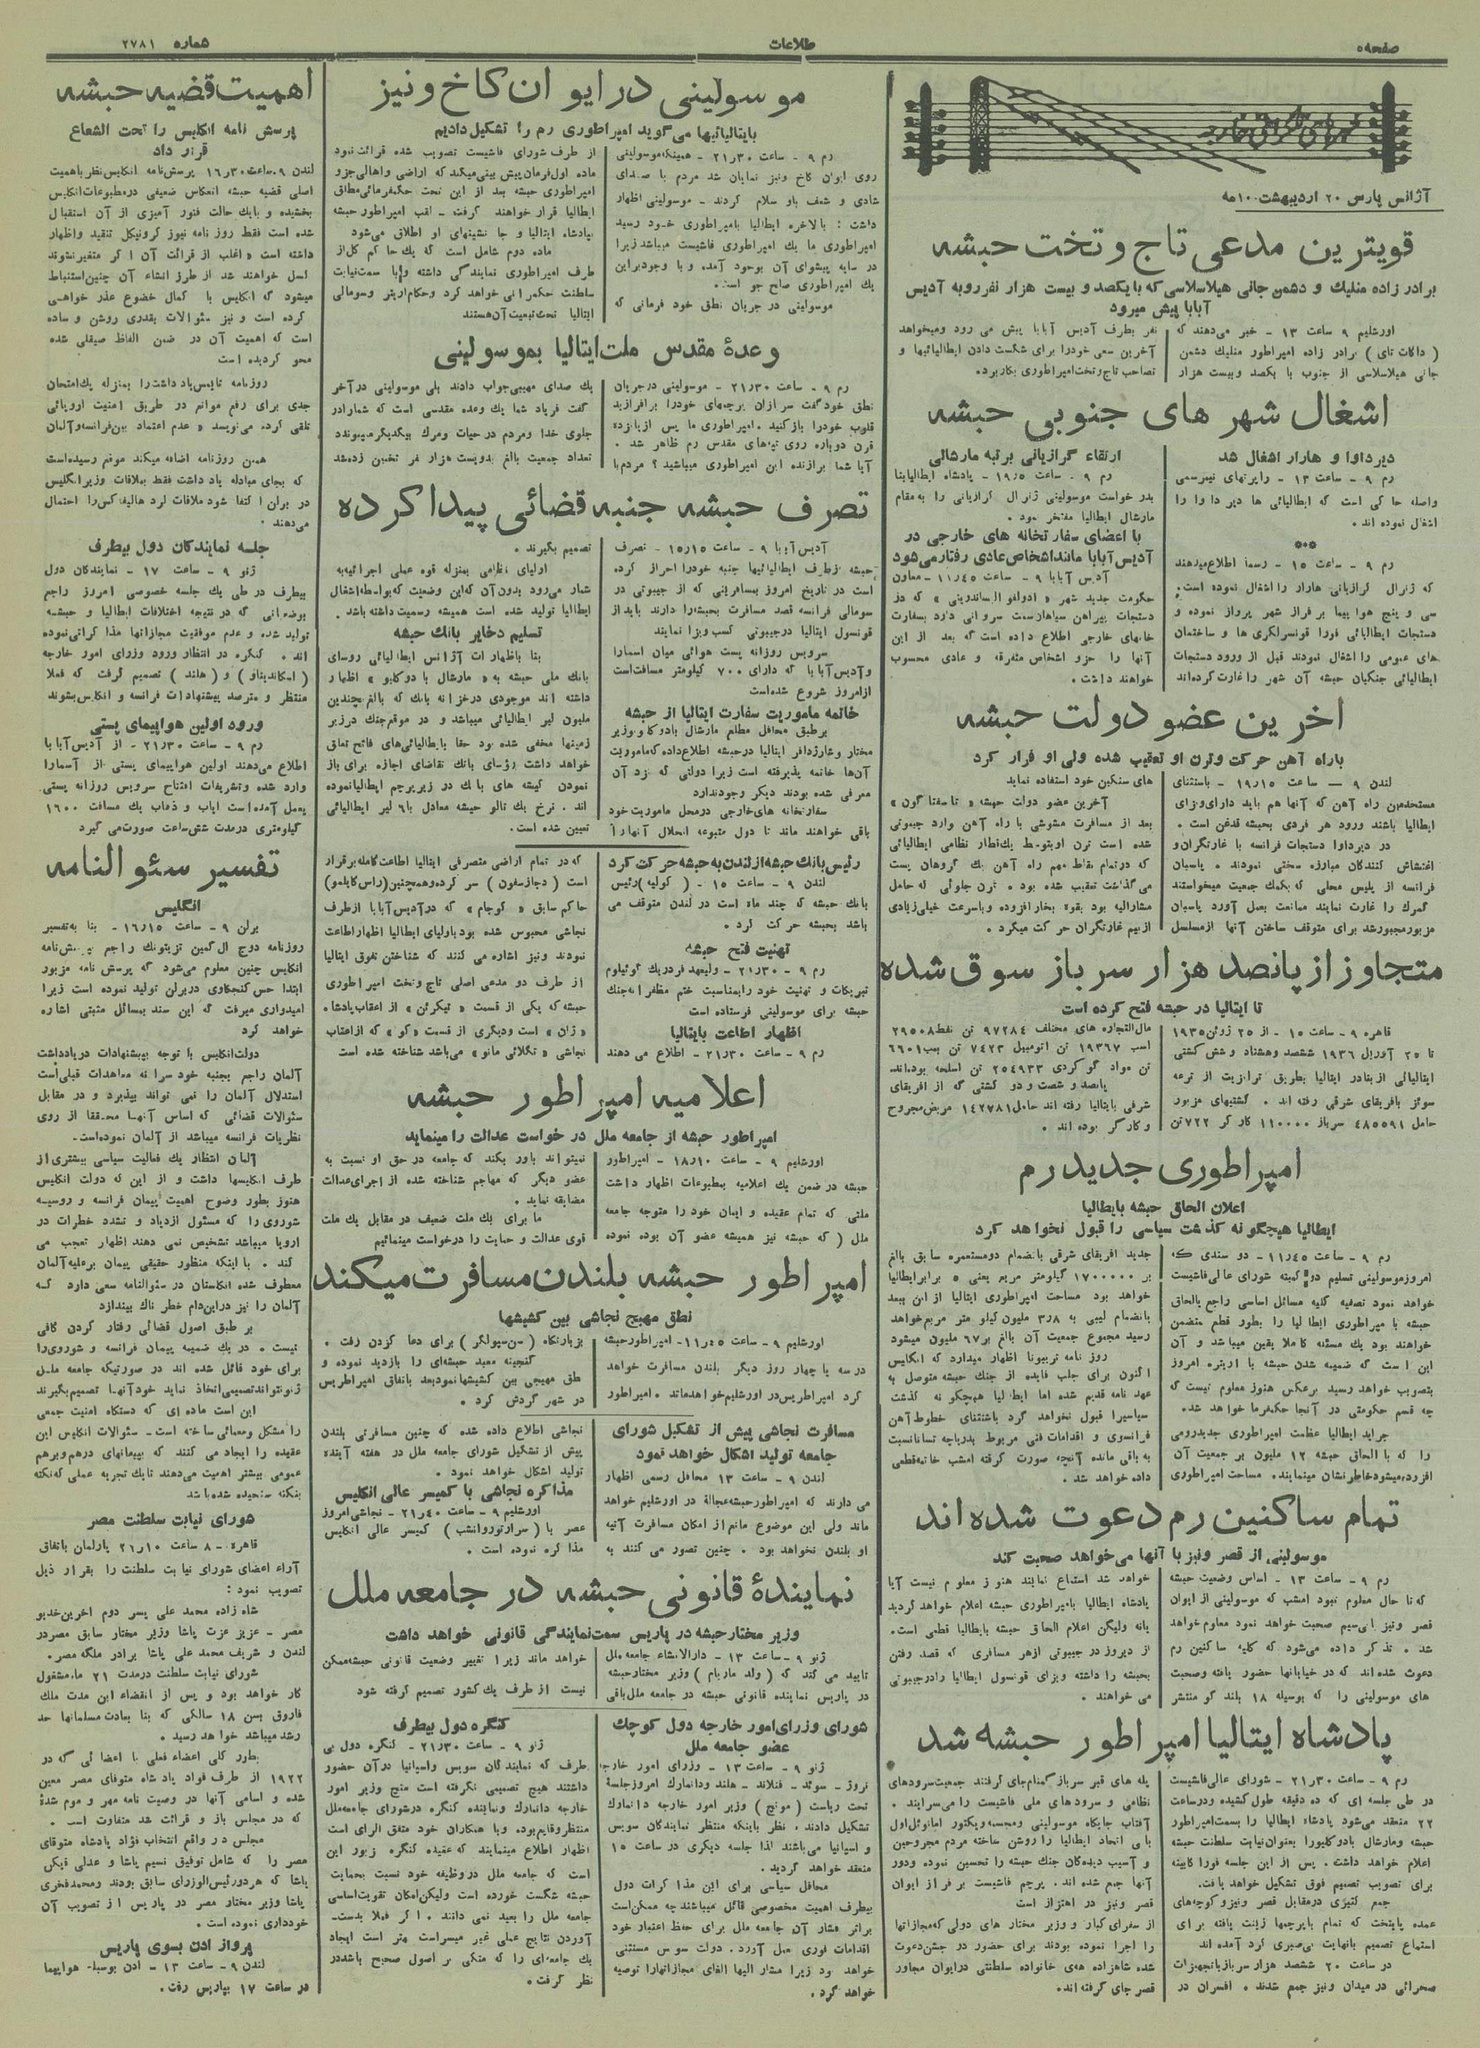 صفحه۵
اطلاعات
شماره ۲۷۸۱
آژانس پارس ۲۰ اردیبهشت ۱۰ مه
قویترین مدعی تاج و تخت حبشه
برادر زاده منلیك و دشمن جانی هیلاسلاسی که با یکصد و بیست هزار نفر رو به آدیس
آبابا پیش میرود
اورشلیم ۹ ساعت ۱۳ - خبر می‌دهند که
برادر زاده امپراطور منلیك دشمن
جانی هیلاسلاسی از جنوب با یکصد و بیست هزار
نفر بطرف آدیس آبابا پیش می رود و میخواهد
آخرین سعی خود را برای شکست دادن ایطالیائیها و
تصاحب تاج و تخت امپراطوری بکار برد.
اشغال شهر های جنوبی حبشه
دیرداوا و هارار اشغال شد
رم ۹ - ساعت ۱۳ - راپرتهای غیررسمی
واصله حاکی است که ایطالیائی ها دیر داوا را
اشغال نموده اند .
رم ۹ - ساعت ۱۵ - رسماً اطلاع میدهند
که ژنرال گرازیانی هارار را اشغال نموده است.
سی و پنج هواپیما بر فراز شهر پرواز نموده و
دستجات ایطالیائی فوراً قونسولگری ها و ساختمان
های عمومی را اشغال نمودند قبل از ورود دستجات
ایطالیائی جنگیان حبشه آن شهر را غارت کرده‌اند
ارتقاء گرازیانی برتبه مارشالی
رم ۹ - ساعت ۱۹٫۵ - پادشاه ایطالیا بنا
بدرخواست موسولینی ژنرال گرازیانی را به مقام
مارشال ایطالیا مفتخر نمود .
با اعضای سفارتخانه های خارجی در
آدیس‌آبابا مانند اشخاص عادی رفتار می‌شود
آدیس آبابا ۹ - ساعت ۱۱٫۴۵ - معاون
حکومت جدید شهر
دستجات پیراهن سیاهان سمت سروانی دارد بسفارت
خانهای خارجی اطلاع داده است که بعد از این
آنها را جزو اشخاص متفرقه و عادی محسوب
خواهند داشت .
اخرین عضو دولت حبشه
باراه آهن حرکت و ترن او تعقیب شده ولی او فرار کرد
لندن ۹ - ساعت ۱۹٫۱۵ - باستثنای
مستخدمین راه آهن که آنها هم باید دارای ویزای
ایطالیا باشند ورود هر فردی بحبشه قدغن است .
در دیرداوا دستجات فرانسه با غارتگران و
اغتشاش کنندگان مبارزه سختی نمودند . پاسبان
فرانسه از پلیس محلی که بکمك جمعیت میخواستند
گمرك را غارت نمایند ممانعت بعمل آورد پاسبان
مزبور مجبور شد برای متوقف ساختن آنها از مسلسل
های سنگین خود استفاده نماید
آخرین عضو دولت حبشه
بعد از مسافرت مشوشی با راه آهن وارد جیبوتی
شده است ترن او بتوسط یك قطار نظامی ایطالیائی
که در تمام نقاط مهم راه آهن یك گروهان پست
می‌گذاشت تعقیب شده بود . ترن جلوئی که حامل
مشارالیه بود بقوه بخار افزوده و باسرعت خیلی زیادی
از بیم غارتگران حرکت میکرد .
متجاوز از پانصد هزار سرباز سوق شده
تا ایتالیا در حبشه فتح کرده است
قاهره ۹ - ساعت ۱۵ - از ۲۵ ژوئن ۱۹۳۵
تا ۲۵ آوریل ۱۹۳۶ ششصد و هشتاد و شش کشتی
ایتالیائی از بنادر ایتالیا بطریق ترانزیت از ترعه
سوئز بافریقای شرقی رفته اند . کشتیهای مزبور
حامل ۴۸۵۵۹۱ سرباز ۱۱۰۰۰۰ کارگر ۷۲۲ تن
مال‌التجاره های مختلف ۹۷۲۸۴ تن نفط ۲۹۵۰۸
اسب ۱۹۳۶۷ تن اتومبیل ۷۴۲۳ تن بمب ۶۶۰۱
تن مواد گوگردی ۲۵۴۹۳۳ تن اسلحه بوده‌اند.
پانصد و شصت و دو کشتی که از افریقای
شرقی بایتالیا رفته اند حامل ۱۴۲۷۸۱ مریض مجروح
و کارگر بوده اند .
امپراطوری جدید رم
اعلان الحاق حبشه بایطالیا
ایطالیا هیچگونه گذشت سیاسی را قبول نخواهد کرد
رم ۹ - ساعت ۱۱٫۴۵ - دو سندی که
امروز موسولینی تسلیم دو کمیته شورای عالی فاشیست
خواهد نمود تصفیه کلیه مسائل اساسی راجع بالحاق
حبشه با امپراطوری ایطالیا را بطور قطع متضمن
خواهند بود یك مسئله کاملا یقین میباشد و آن
این است که ضمیمه شدن حبشه با اریتره امروز
بتصویب خواهد رسید برعکس هنوز معلوم نیست که
چه قسم حکومتی در آنجا حکمفرما خواهد شد.
جراید ایطالیا عظمت امپراطوری جدید رومی
را که با الحاق حبشه ۱۲ ملیون بر جمعیت آن
افزوده میشود خاطرنشان مینمایند. مساحت امپراطوری
جدید افریقای شرقی بانضمام دو مستعمره سابق بالغ
بر ۱۷۰۰۰۰۰ کیلومتر مربع یعنی ۵ برابر ایطالیا
خواهد بود مساحت امپراطوری ایتالیا از این ببعد
بانضمام لیبی به ۳٫۸ ملیون کیلومتر مربع خواهد
رسید مجموع جمعیت آن بالغ بر ۶۷ ملیون میشود
روز نامه تریبونا اظهار میدارد که انگلیس
اکنون برای جلب فایده از جنك حبشه متوصل به
عهد نامه قدیم شده اما ایطالیا هیچگونه گذشت
سیاسیرا قبول نخواهد کرد باستثنای خطوط آهن
فرانسوی و اقدامات فنی مربوط بدریاچه تسانا نسبت
به باقی مانده آنچه صورت گرفته امشب خاتمه قطعی
داده خواهد شد .
تمام ساکنین رم دعوت شده اند
موسولینی از قصر ونیز با آنها می‌خواهد صحبت کند
رم ۹ - ساعت ۱۳ - اساس وضعیت حبشه
که تا حال معلوم نبود امشب که موسولینی از ایوان
قصر ونیز با بی‌سیم صحبت خواهد نمود معلوم خواهد
شد . تذکر داده می‌شود که کلیه ساکنین رم
دعوت شده اند که در خیابانها حضور یافته و صحبت
های موسولینی را که بوسیله ۱۸ بلند گو منتشر
خواهد شد استماع نمایند هنوز معلوم نیست آیا
پادشاه ایطالیا بامپراطوری حبشه اعلام خواهد گردید
یا نه ولیکن اعلام الحاق حبشه بایطالیا قطعی است.
از دیروز در جیبوتی از هر مسافری که قصد رفتن
بحبشه را داشته ویزای قونسول ایطالیا را در جیبوتی
می خواهند .
پادشاه ایتالیا امپراطور حبشه شد
رم ۹ - ساعت ۲۱٫۳۰ - شورای عالی فاشیست
در طی جلسه ای که ده دقیقه طول کشیده و در ساعت
۲۲ منعقد می‌شود پادشاه ایطالیا را بسمت امپراطور
حبشه و مارشال بادوگلیو را بعنوان نیابت سلطنت حبشه
اعلام خواهد داشت . پس از این جلسه فوراً کابینه
برای تصویب تصمیم فوق تشکیل خواهد یافت.
جمع کثیری در مقابل قصر ونیز و کوچه‌های
عمده پایتخت که تمام با پرچمها زینت یافته برای
استماع تصمیم بانهایت بی‌صبری گرد آمده اند
در ساعت ۲۰ ششصد هزار سرباز با تجهیزات
صحرائی در میدان ونیز جمع شدند . افسران در
پله های قبر سرباز گمنام جای گرفتند جمعیت سرودهای
نظامی و سرودهای ملی فاشیست را می‌سرایند .
آفتاب جایگاه موسولینی و مجسمه ویکتور امانوئل اول
بانی اتحاد ایطالیا را روشن ساخته مردم مجروحین
و آسیب دیده‌گان جنك حبشه را تحسین نموده و دور
آنها جمع شده اند. پرچم فاشیست بر فراز ایوان
قصر ونیز در اهتزاز است
از سفرای کبار و وزیر مختار های دولی که مجازاتها
را اجرا نموده بودند برای حضور در جشن دعوت
شده شاهزاده های خانواده سلطنتی در ایوان مجاور
قصر جای گرفته اند.
موسولینی در ایوان کاخ ونیز
بایتالیائیها می‌گوید امپراطوری رم را تشکیل دادیم
رم ۹ - ساعت ۲۱٫۳۰ - همینکه موسولینی
روی ایوان کاخ ونیز نمایان شد مردم با صدای
شادی و شعف باو سلام کردند - موسولینی اظهار
داشت : بالاخره ایطالیا بامپراطوری خود رسید
امپراطوری ما یك امپراطوری فاشیست میباشد زیرا
در سایه پیشوای آن بوجود آمده و با وجود براین
یك امپراطوری صلح جو است.
موسولینی در جریان نطق خود فرمانی که
از طرف شورای فاشیست تصویب شده قرائت نمود
ماده اول فرمان پیش بینی میکند که اراضی و اهالی جزو
امپراطوری حبشه بعد از این تحت حکمفرمائی مطلق
ایطالیا قرار خواهند گرفت - لقب امپراطور حبشه
بپادشاه ایتالیا و جانشینهای او اطلاق می‌شود
ماده دوم شامل است که یك حاکم کل از
طرف امپراطوری نمایندگی داشته و با سمت نیابت
سلطنت حکمرانی خواهد کرد و حکام اریتره و سومالی
ایتالیا تحت تبعیت آن هستند
وعدهٔ مقدس ملت ایتالیا بموسولینی
رم ۹ - ساعت ۲۱٫۳۰ - موسولینی در جریان
نطق خود گفت سربازان پرچمهای خود را برافرازید
قلوب خود را باز کنید . امپراطوری ما پس از پانزده
قرن دوباره روی تپه‌های مقدس رم ظاهر شد .
آیا شما برازنده این امپراطوری میباشید ؟ مردم با
یك صدای مهیبی جواب دادند بلی موسولینی در آخر
گفت فریاد شما یك وعده مقدسی است که شما را در
جلوی خدا و مردم در حیات و مرك بیکدیگر میبوندد
تعداد جمعیت بالغ بدویست هزار نفر تخمین زده شد
تصرف حبشه جنبه قضائی پیدا کرده
آدیس آبابا ۹ - ساعت ۱۵٫۱۵ - تصرف
حبشه از طرف ایطالیائیها جنبه خود را احراز کرده
است در تاریخ امروز بمسافرینی که از جیبوتی در
سومالی فرانسه قصد مسافرت بحبشه را دارند باید از
قونسول ایتالیا در جیبوتی کسب ویزا نمایند
سرویس روزانه پست هوائی میان اسمارا
و آدیس‌آبابا که دارای ۷۰۰ کیلومتر مسافت است
از امروز شروع شده‌است
خاتمه ماموریت سفارت ایتالیا از حبشه
برطبق محافل مطلع مارشال بادوگلو وزیر
مختار و شارژدافر ایتالیا در حبشه اطلاع داده که ماموریت
آن‌ها خاتمه پذیرفته است زیرا دولتی که نزد آن
معرفی شده بودند دیگر وجود ندارد
سفارتخانه های خارجی در محل ماموریت خود
باقی خواهند ماند تا دول متبوعه انحلال آنها را
تصمیم بگیرند .
اولیای نظامی بمنزله قوه عملی اجرائیه به
شمار میرود بدون آن که این وضعیت که بواسطه اشغال
ایطالیا تولید شده است همیشه رسمیت داشته باشد .
تسلیم ذخایر بانك حبشه
بنا باظهارات آژانس ایطالیائی روسای
بانك ملی حبشه به « مارشال بادوگلیو » اظهار
داشته اند موجودی در خزانه بانك که بالغ بچندین
ملیون لیر ایطالیائی میباشد و در موقع جنك در زیر
زمینها مخفی شده بود حقا بایطالیائی‌های فاتح تعلق
خواهد داشت رؤسای بانك تقاضای اجازه برای باز
نمودن گیشه های بانك در زیر پرچم ایطالیا نموده
اند . نرخ یك تالر حبشه معادل با ۶ لیر ایطالیائی
تعیین شده است .
رئیس بانك حبشه از لندن به حبشه حرکت کرد
لندن ۹ - ساعت ۱۵ - ( کولیه ) رئیس
بانك حبشه که چند ماه است در لندن متوقف می
باشد بحبشه حرکت کرد .
تهنیت فتح حبشه
رم ۹ - ۲۱٫۳۰ - ولیعهد فردریك گوئیلوم
تبریکات و تهنیت خود را بمناسبت ختم مظفرانه جنك
حبشه برای موسولینی فرستاده است
اظهار اطاعت بایتالیا
رم ۹ - ساعت ۲۱٫۳۰ - اطلاع می دهند
که در تمام اراضی متصرفی ایتالیا اطاعت کامله برقرار
است ( دجازسفون ) سر کرده و همچنین (راس کاپلمو)
حاکم سابق « کوجام » که در آدیس آبابا از طرف
نجاشی محبوس شده بود باولیای ایطالیا اظهار اطاعت
نمودند و نیز اشاره می کنند که شناختن نفوق ایتالیا
از طرف دو مدعی اصلی تاج و تخت امپراطوری
حبشه که یکی از قسمت « تیکرئن » از اعقاب پادشاه
« ژان » است و دیگری از قسمت « کو » که از اعقاب
نجاشی « تگلائی مانو » می‌باشد شناخته شده است
اعلامیه امپراطور حبشه
امپراطور حبشه از جامعه ملل در خواست عدالت را مینماید
اورشلیم ۹ - ساعت ۱۸٫۱۰ - امپراطور
حبشه در ضمن یك اعلامیه بمطبوعات اظهار داشت
ملتی که تمام عقیده و ایمان خود را متوجه جامعه
ملل ( که حبشه نیز همیشه عضو آن بوده نموده
نمیتواند باور بکند که جامعه در حق او نسبت به
عضو دیگر که مهاجم شناخته شده از اجرای عدالت
مضایقه نماید .
ما برای یك ملت ضعیف در مقابل یك ملت
قوی عدالت و حمایت را درخواست مینمائیم
امپراطور حبشه بلندن مسافرت میکند
نطق مهیج نجاشی بین کشیشها
اورشلیم ۹ - ساعت ۱۱٫۴۵ - امپراطور حبشه
در سه یا چهار روز دیگر بلندن مسافرت خواهد
کرد امپراطریس در اورشلیم خواهد ماند . امپراطور
بزیارتگاه ( سن سپولکر ) برای دعا کردن رفت .
گنجینه معبد حبشه‌ای را بازدید نموده و
طق مهیجی بین کشیشها نمود بعد باتفاق امپراطریس
در شهر گردش کرد .
مسافرت نجاشی پیش از تشکیل شورای
جامعه تولید اشکال خواهد نمود
لندن ۹ - ساعت ۱۳ محافل رسمی اظهار
می دارند که امپراطور حبشه عجالة در اورشلیم خواهد
ماند ولی این موضوع مانع از امکان مسافرت آتیه
او بلندن نخواهد بود . چنین تصور می کنند به
نجاشی اطلاع داده شده که چنین مسافرتی بلندن
پیش از تشکیل شورای جامعه ملل در هفته آینده
تولید اشکال خواهد نمود .
مذاکره نجاشی با کمیسر عالی انگلیس
اورشلیم ۹ - ساعت ۲۱٫۴۰ - نجاشی امروز
عصر با ( سرارتورواشب ) کمیسر عالی انگلیس
مذاکره نموده است .
نمایندهٔ قانونی حبشه در جامعه ملل
وزیر مختار حبشه در پاریس سمت نمایندگی قانونی خواهد داشت
ژنو ۹ - ساعت ۱۳ - دارالانشاء جامعه ملل
تایید می کند که ( ولد ماریام ) وزیر مختار حبشه
در پاریس نماینده قانونی حبشه در جامعه ملل باقی
خواهد ماند زیرا تغییر وضعیت قانونی حبشه ممکن
نیست از طرف یك کشور تصمیم گرفته شود
شورای وزرای امور خارجه دول کوچك
عضو جامعه ملل
ژنو ۹ - ساعت ۱۳ - وزرای امور خارجه
نروژ - سوئد - فنلاند - هلند و دانمارك امروز جلسه
تحت ریاست ( مونچ ) وزیر امور خارجه دانمارك
تشکیل دادند . نظر باینکه منتظر نمایندگان سویس
و اسپانیا می‌باشند لذا جلسه دیگری در ساعت ۱۵
منعقد خواهد گردید .
محافل سیاسی برای این مذاکرات دول
بیطرف اهمیت مخصوصی قائل میباشند چه ممکن است
براثر فشار آن جامعه ملل برای حفظ اعتبار خود
اقدامات فوری بعمل آورد. دولت سوس مستثنی
خواهد بود زیرا مشار الیها الغای مجازاتها را توصیه
خواهد کرد .
کنگره دول بیطرف
ژنو ۹ - ساعت ۲۱٫۳۰ - کنگره دول بی
طرف که نمایندگان سویس و اسپانیا در آن حضور
داشتند هیچ تصمیمی نگرفته است منچ وزیر امور
خارجه دانمارك و نماینده کنگره در شورای جامعه ملل
منتظر وقایع بوده و با همکاران خود متفق الرای است
اظهار اطلاع مینمایند که عقیده کنگره زبور این
است که جامعه ملل در وظیفه خود نسبت بحمایت
حبشه شکست خورده است ولیکن امکان تقویت اساسی
جامعه ملل را بعید نمی دانند . اگر فعلا بدست
آوردن نتایج عملی غیر میسر است بهتر است ایجاد
یك جامعه‌ای را که متکی بر اصول صحیح باشد در
نظر گرفت .
اهمیت قضیه حبشه
پرسش نامه انگلیس را تحت الشعاع
قرار داد
لندن ۹ - ساعت ۱۶٫۳۰ پرسش‌نامه انگلیس نظر باهمیت
اصلی قضیه حبشه انعکاس ضعیفی در مطبوعات انگلیس
بخشیده و بایك حالت فتور آمیزی از آن استقبال
شده است فقط روزنامه نیوز کرونیکل تنقید و اظهار
داشته است « اغلب از قرائت آن اگر متغیر نشوند
کسل خواهند شد از طرز انشاء آن چنین استنباط
میشود که انگلیس با کمال خضوع عذر خواهی
کرده است و نیز سئوالات بقدری روشن و ساده
است که اهمیت آن در ضمن الفاظ صیقلی شده
محو گردیده است
روزنامه تایمس یادداشت را بمنزله یك امتحان
جدی برای رفع موانع در طریق امنیت اروپائی
تلقی کرده می‌نویسد « عدم اعتماد بین فرانسه و آلمان
همین روزنامه اضافه میکند موقع رسیده است
که بجای مبادله یاد داشت فقط بملاقات وزیر انگلیس
در برلن اکتفا شود ملاقات لرد هالیفاکس را احتمال
می‌دهند .
جلسه نمایندگان دول بیطرف
ژنو ۹ - ساعت ۱۷ - نمایندگان دول
بیطرف در طی یك جلسه خصوصی امروز راجع
بوضعیاتی که در نتیجه اختلافات ایطالیا و حبشه
تولید شده و عدم موفقیت مجازاتها مذاکراتی نموده
اند . کنگره در انتظار ورود وزرای امور خارجه
(اسکاندیناو) و ( هلند ) تصمیم گرفت که فعلا
منتظر و مترصد پیشنهادات فرانسه و انگلیس بشوند
ورود اولین هواپیمای پستی
رم ۹ - ساعت ۲۱٫۳۰ - از آدیس آبابا
اطلاع می‌دهند اولین هواپیمای پستی از آسمارا
وارد شده و تشریفات افتتاح سرویس روزانه پستی
بعمل آمده است ایاب و ذهاب یك مسافت ۱۶۰۰
کیلومتری در مدت شش ساعت صورت می گیرد
تفسیر سئوالنامه
انگلیس
برلن ۹ - ساعت ۱۶٫۱۵ - بنا به تفسیر
روزنامه دوچ ال گمین تزیتونك راجع بپرسش‌نامه
انگلیس چنین معلوم می‌شود که پرسش نامه مزبور
ابتدا حس کنجکاوی در برلن تولید نموده است زیرا
امیدواری میرفت که این سند بمسائل مثبتی اشاره
خواهد کرد
دولت انگلیس با توجه بپیشنهادات در یادداشت
آلمان راجع بجنبه خود سرانه معاهدات قبلی است
استدلال آلمان را نمی تواند بپذیرد و در مقابل
سئوالات قضائی که اساس آنها محققا از روی
نظریات فرانسه میباشد از آلمان نموده‌است.
آلمان انتظار یك فعالیت سیاسی بیشتری از
طرف انگلیسها داشت و از این که دولت انگلیس
هنوز بطور وضوح اهمیت پیمان فرانسه و روسیه
شوروی را که مسئول ازدیاد و تشدد خطرات در
اروپا میباشد تشخیص نمی دهند اظهار تعجب می
کند . با اینکه منظور حقیقی پیمان برعلیه آلمان
معطوف شده انگلستان در سئوالنامه سعی دارد که
آلمان را نیز در این دام خطر ناك بیندازد
بر طبق اصول قضائی رفتار کردن کافی
نیست . در یك ضمیمه پیمان فرانسه و شوروی را
برای خود قائل شده اند در صورتیکه جامعه ملل
ژنو نتواند تصمیمی اتخاذ نماید خود آنها تصمیم بگیرند
این است ماده ای که دستگاه امنیت جمعی
را مشکل و معمائی ساخته است - سئوالات انگلیس این
عقیده را ایجاد می کنند که بپیمانهای درهم و برهم
عمومی بیشتر اهمیت می‌دهند تا یك تجربه عملی که نکته
بنکته سنجیده شده باشد
شورای نیابت سلطنت مصر
قاهره - ۸ ساعت ۲۱٫۱۰ پارلمان باتفاق
آراء اعضای شورای نیابت سلطنت را بقرار ذیل
تصویب نمود :
شاه زاده محمد علی پسر دوم اخرین خدیو
مصر - عزیز عزت پاشا وزیر مختار سابق مصر در
لندن و شریف محمد علی پاشا برادر ملکه مصر.
شورای نیابت سلطنت در مدت ۲۱ ماه مشغول
کار خواهد بود و پس از انقضاء این مدت ملك
فاروق بسن ۱۸ سالگی که بنا بعادت مسلمانها حد
رشد میباشد خواهد رسید .
بطور کلی اعضاء فعلی با اعضائی که در
۱۹۲۲ از طرف فواد پادشاه متوفای مصر معین
شده و اسامی آنها در وصیت نامه مهر و موم شده
که در مجلس باز و قرائت شد متفاوت است .
مجلس در واقع انتخاب فؤاد پادشاه متوفای
مصر را که شامل توفیق نسیم پاشا و عدلی فیکن
پاشا که هر دو رئیس‌الوزرای سابق بودند و محمد فخری
پاشا وزیر مختار مصر در پاریس از تصویب آن
خودداری نموده است .
پرواز ادن بسوی پاریس
لندن ۹ - ساعت ۱۳ - ادن بوسیله هواپیما
در ساعت ۱۷ بپاریس رفت .